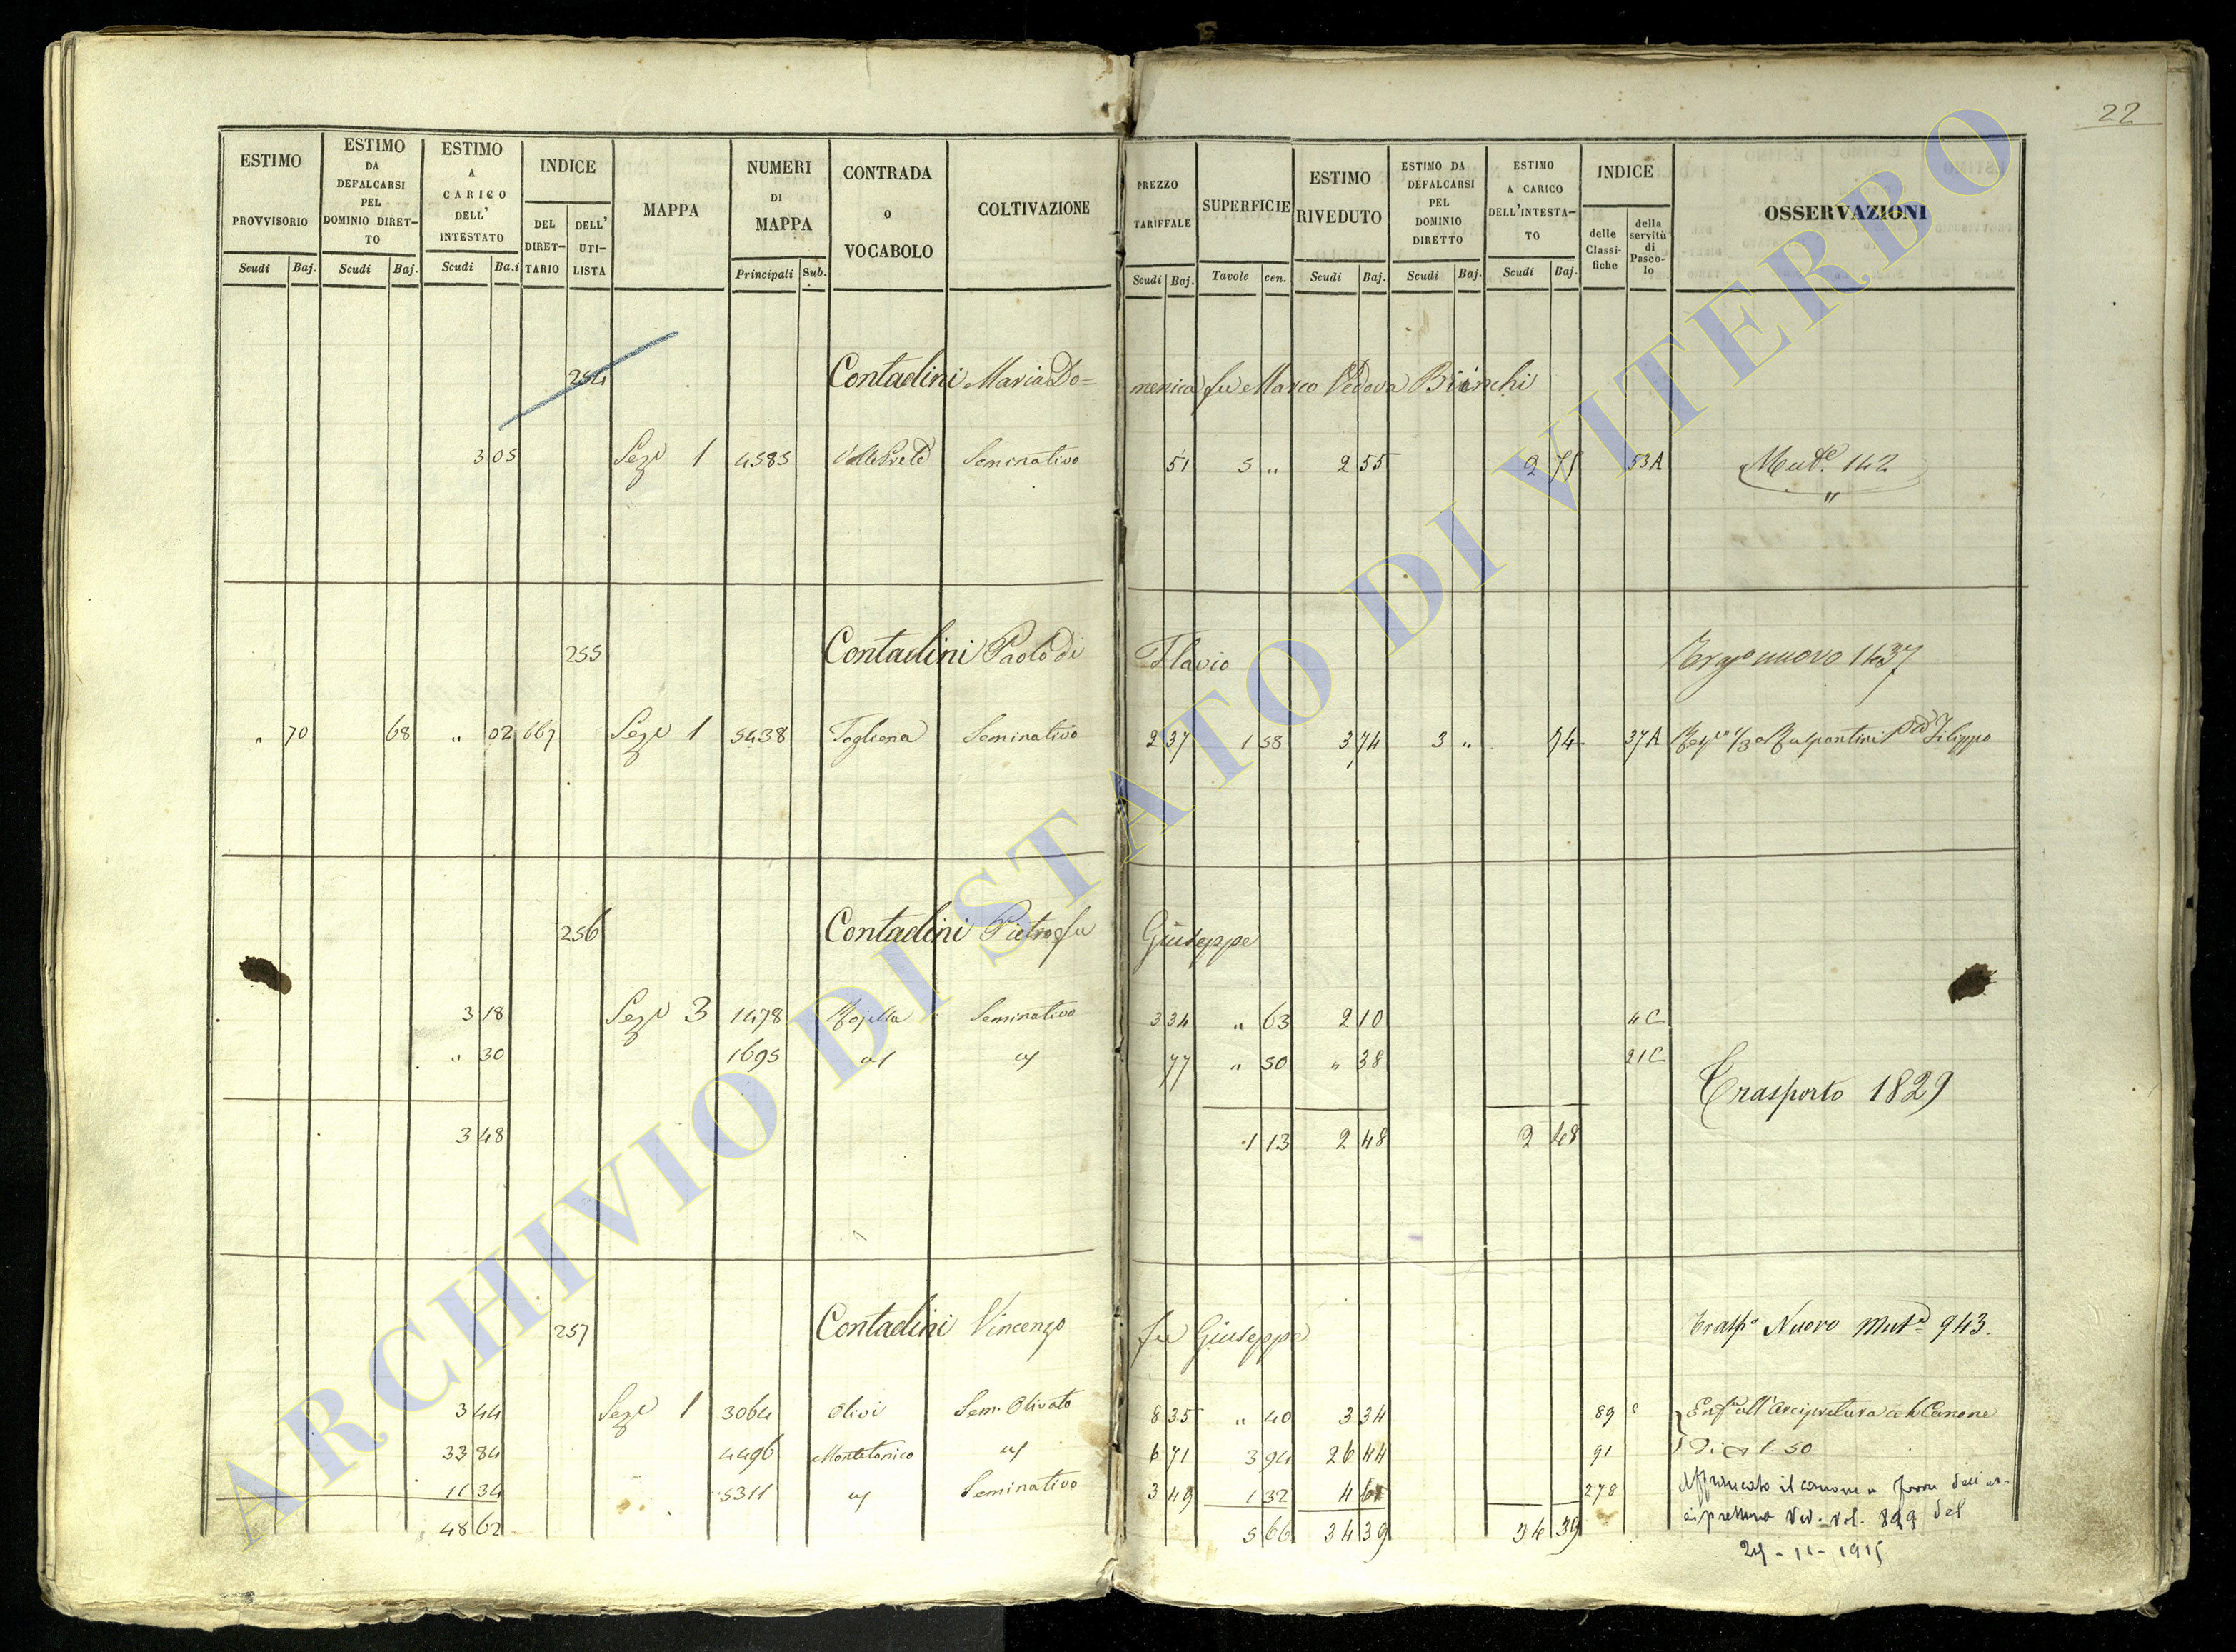 22
ESTIMO PROVVISORIO Scudi Baj.
ESTIMO DA DEFALCARSI PEL DOMINIO DIRET-TO Scudi Baj.
ESTIMO A CARICO DELL' INTESTATO Scudi Ba.i
INDICE DEL DIRET-TARIO DELL' UTI-LISTA
MAPPA
NUMERI DI MAPPA Principali Sub.
CONTRADA o VOCABOLO
COLTIVAZIONE
PREZZO TARIFFALE Scudi Baj.
SUPERFICIE Tavole cen.
ESTIMO RIVEDUTO Scudi Baj.
ESTIMO DA DEFALCARSI PEL DOMINIO DIRETTO Scudi Baj.
ESTIMO A CARICO DELL'INTESTA-TO Scudi Baj.
INDICE delle Classi-fiche della servitù di Pasco-lo
OSSERVAZIONI
254 Contadini Maria Do= menica fu Marco Vedova Bianchi
3 05 Sez.e 1 4585 Seminativo 51 5 „ 2 55 2 75 53A Mut.e 142
255 Contadini Paolo di Flavio nuovo 1437
„ 70 68 „ 02 667 Sez.e 1 5438 Togliena Seminativo 2 37 1 58 3 74 3 „ 74 37A Filippo
256 Contadini Pietro fu Giuseppe
3 18 Sez.e 3 1478 Seminativo 3 34 „ 63 2 10 4C
„ 30 1695 77 „ 50 „ 38 21C
Trasporto 1829
3 48 1 13 2 48 2 48
257 Contadini Vincenzo fu Giuseppe Trasp.o Nuovo Mut.e 943.
3 44 Sez.e 1 3064 Olivi Sem. Olivato 8 35 „ 40 3 34 89 c Enf.a all'Arcipretura col Canone
33 84 4496 Montetonico 6 71 3 94 26 44 91 di 1.50
11 34 5311 Seminativo 3 49 1 32 4 61 278 Affrancato il canone a favore dell'ar-
48 62 5 66 34 39 34 39 cipretura Ved. vol. 829 del
24-11-1915
ARCHIVIO DI STATO DI VITERBO